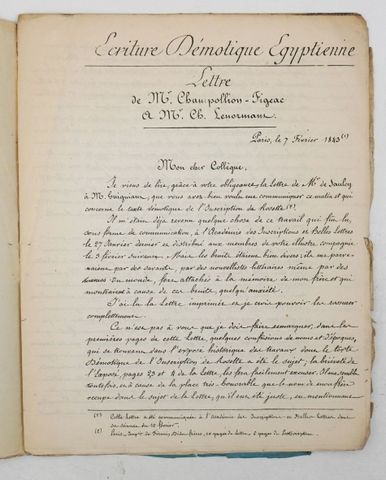 Ecriture Démotique Egyptienne
Lettre
de Mr. Champollion-Figeac
A Mr. Ch. Lenormant.
Paris, le 7 Février 1843 (1)
Mon cher Collègue,
Je viens de lire, grâce à votre obligeance, la Lettre de Mr. de Saulcy
à M. Guigniaut, que vous avez bien voulu me communiquer ce matin et qui
concerne le texte démotique de l'Inscription de Rosette (2)
Il m'était déjà revenu quelque chose de ce travail qui fut lu,
sous forme de communication, à l'Académie des Inscriptions et Belles Lettres
le 27 Janvier dernier et distribué aux membres de votre illustre compagnie
le 3 février suivant. Mais les bruits étaient bien divers; ils me parve-
naient par des savants, par des nouvellistes littéraires même par des
du monde, fort attachés à la mémoire de mon frère et qui
montraient à cause de ces bruits, quelqu'anxiété.
J'ai lu la Lettre imprimée et je crois pouvoir les rassurer
complettement.
Ce n'est pas à vous que je dois faire remarquer, dans les
premières pages de cette Lettre, quelques confusions de noms et d'époques,
qui se trouvent dans l'exposé historique des travaux dont le texte
Démotique de l'Inscription de Rosette a été le sujet; la brièveté de
l'Exposé, pages 23 et 4 de la Lettre, les font facilement excuser. Il me semble
toutefois, et à cause de la place très-honorable que le nom de mon frère
occupe dans le sujet de la Lettre, qu'il eut été juste, en mentionnant
(1) Cette Lettre a été communiquée à l'académie des Inscriptions et Belles Lettres dans
sa séance du 10 février
(2) Paris, Impr. de Firmin Didot frères,